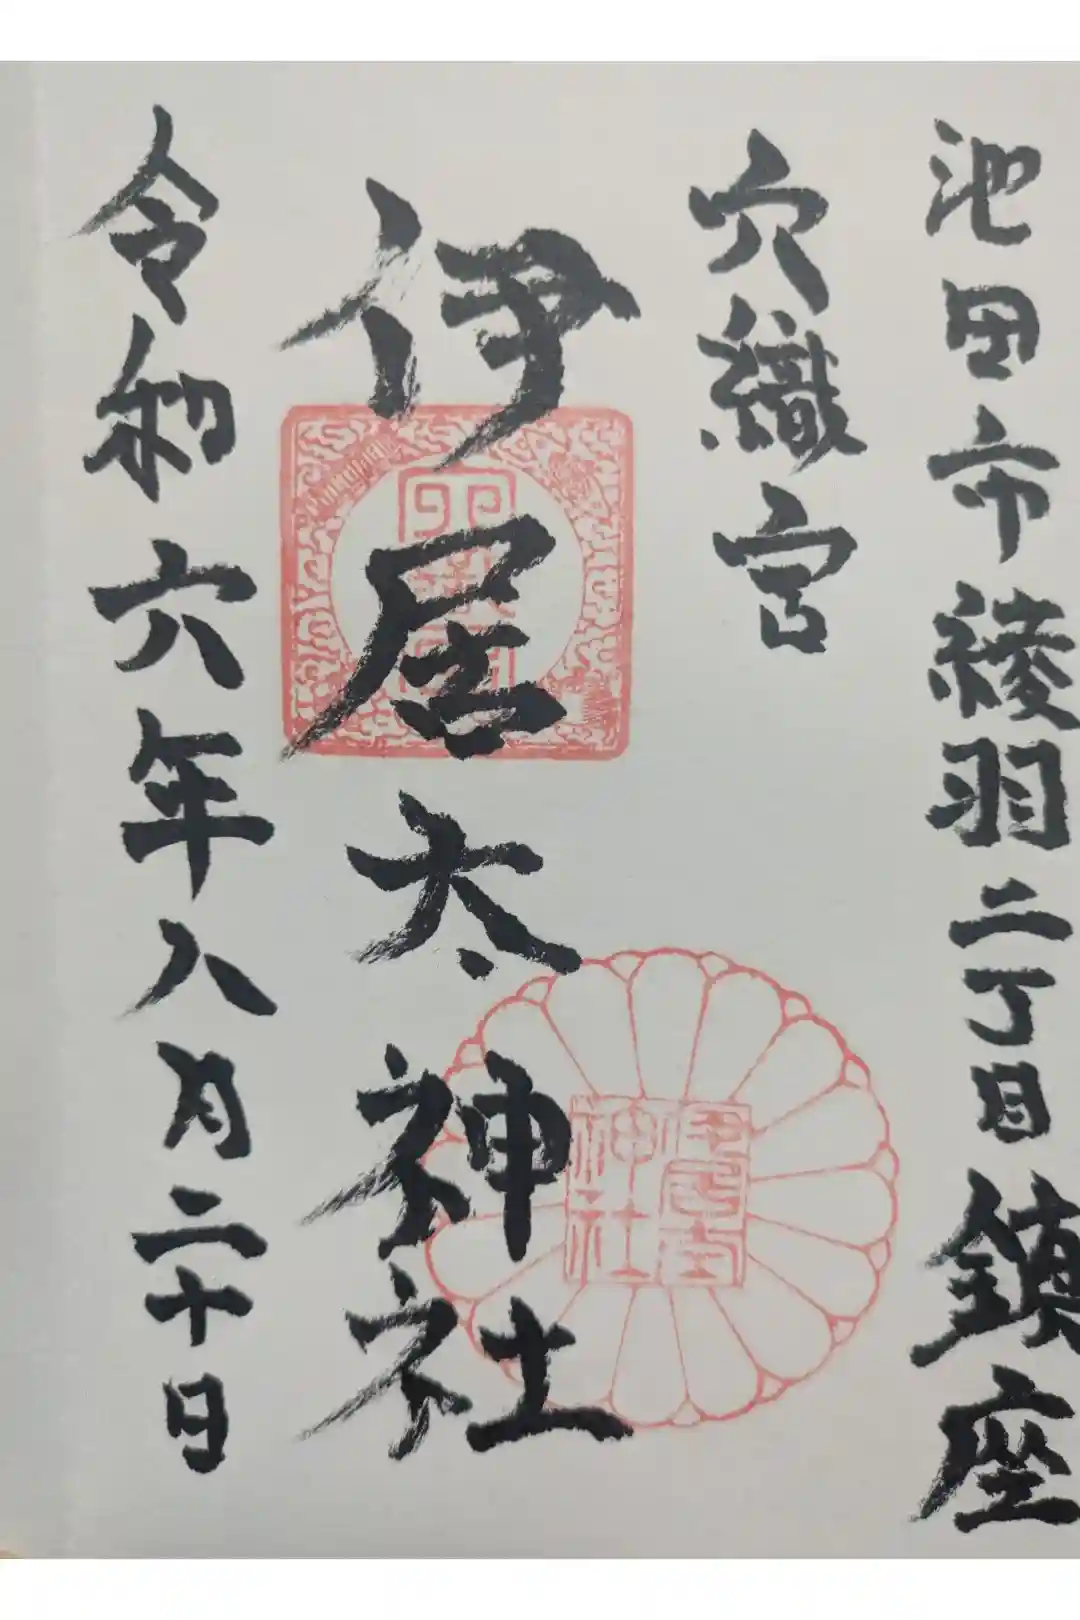 池田市綾羽二丁目鎮座
穴織宮
伊居太神社
令和六年八月二十日
伊居太
神社